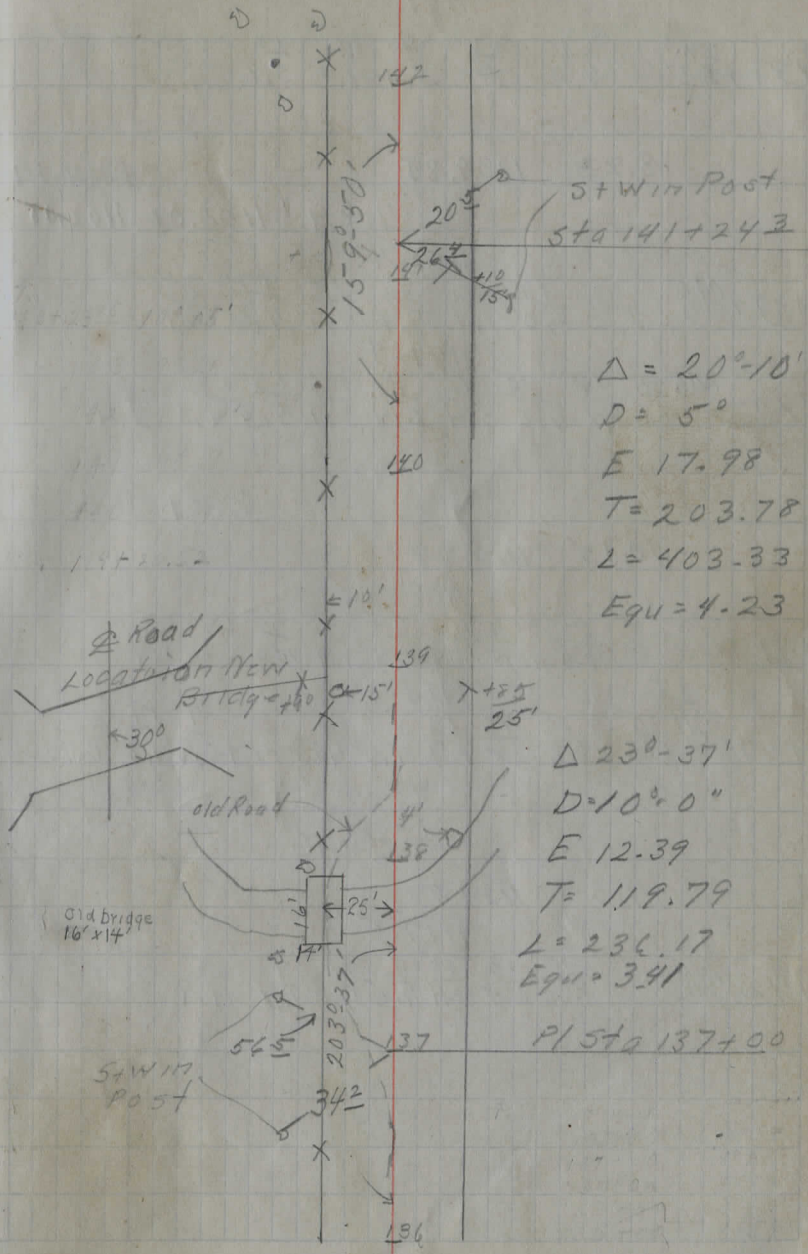 142
159°-50'
20 5
S+W in Post
Sta 141+24 3
26 4
141
+10
15
Δ = 20°-10'
D = 5°
E 17.98
T = 203.78
L = 403.33
Equ = 4.23
140
10'
℄ Road
Location New
Bridge +90
139
15'
+85
25'
30°
Δ 23°-37'
D = 10°-0"
E 12.39
T = 119.79
L = 236.17
Equ = 3.41
old Road
4'
138
16'
25'
14'
old bridge
16' x 14'
203°-37'
56 5
137
PI Sta 137+00
S+W in
Post
34 2
136